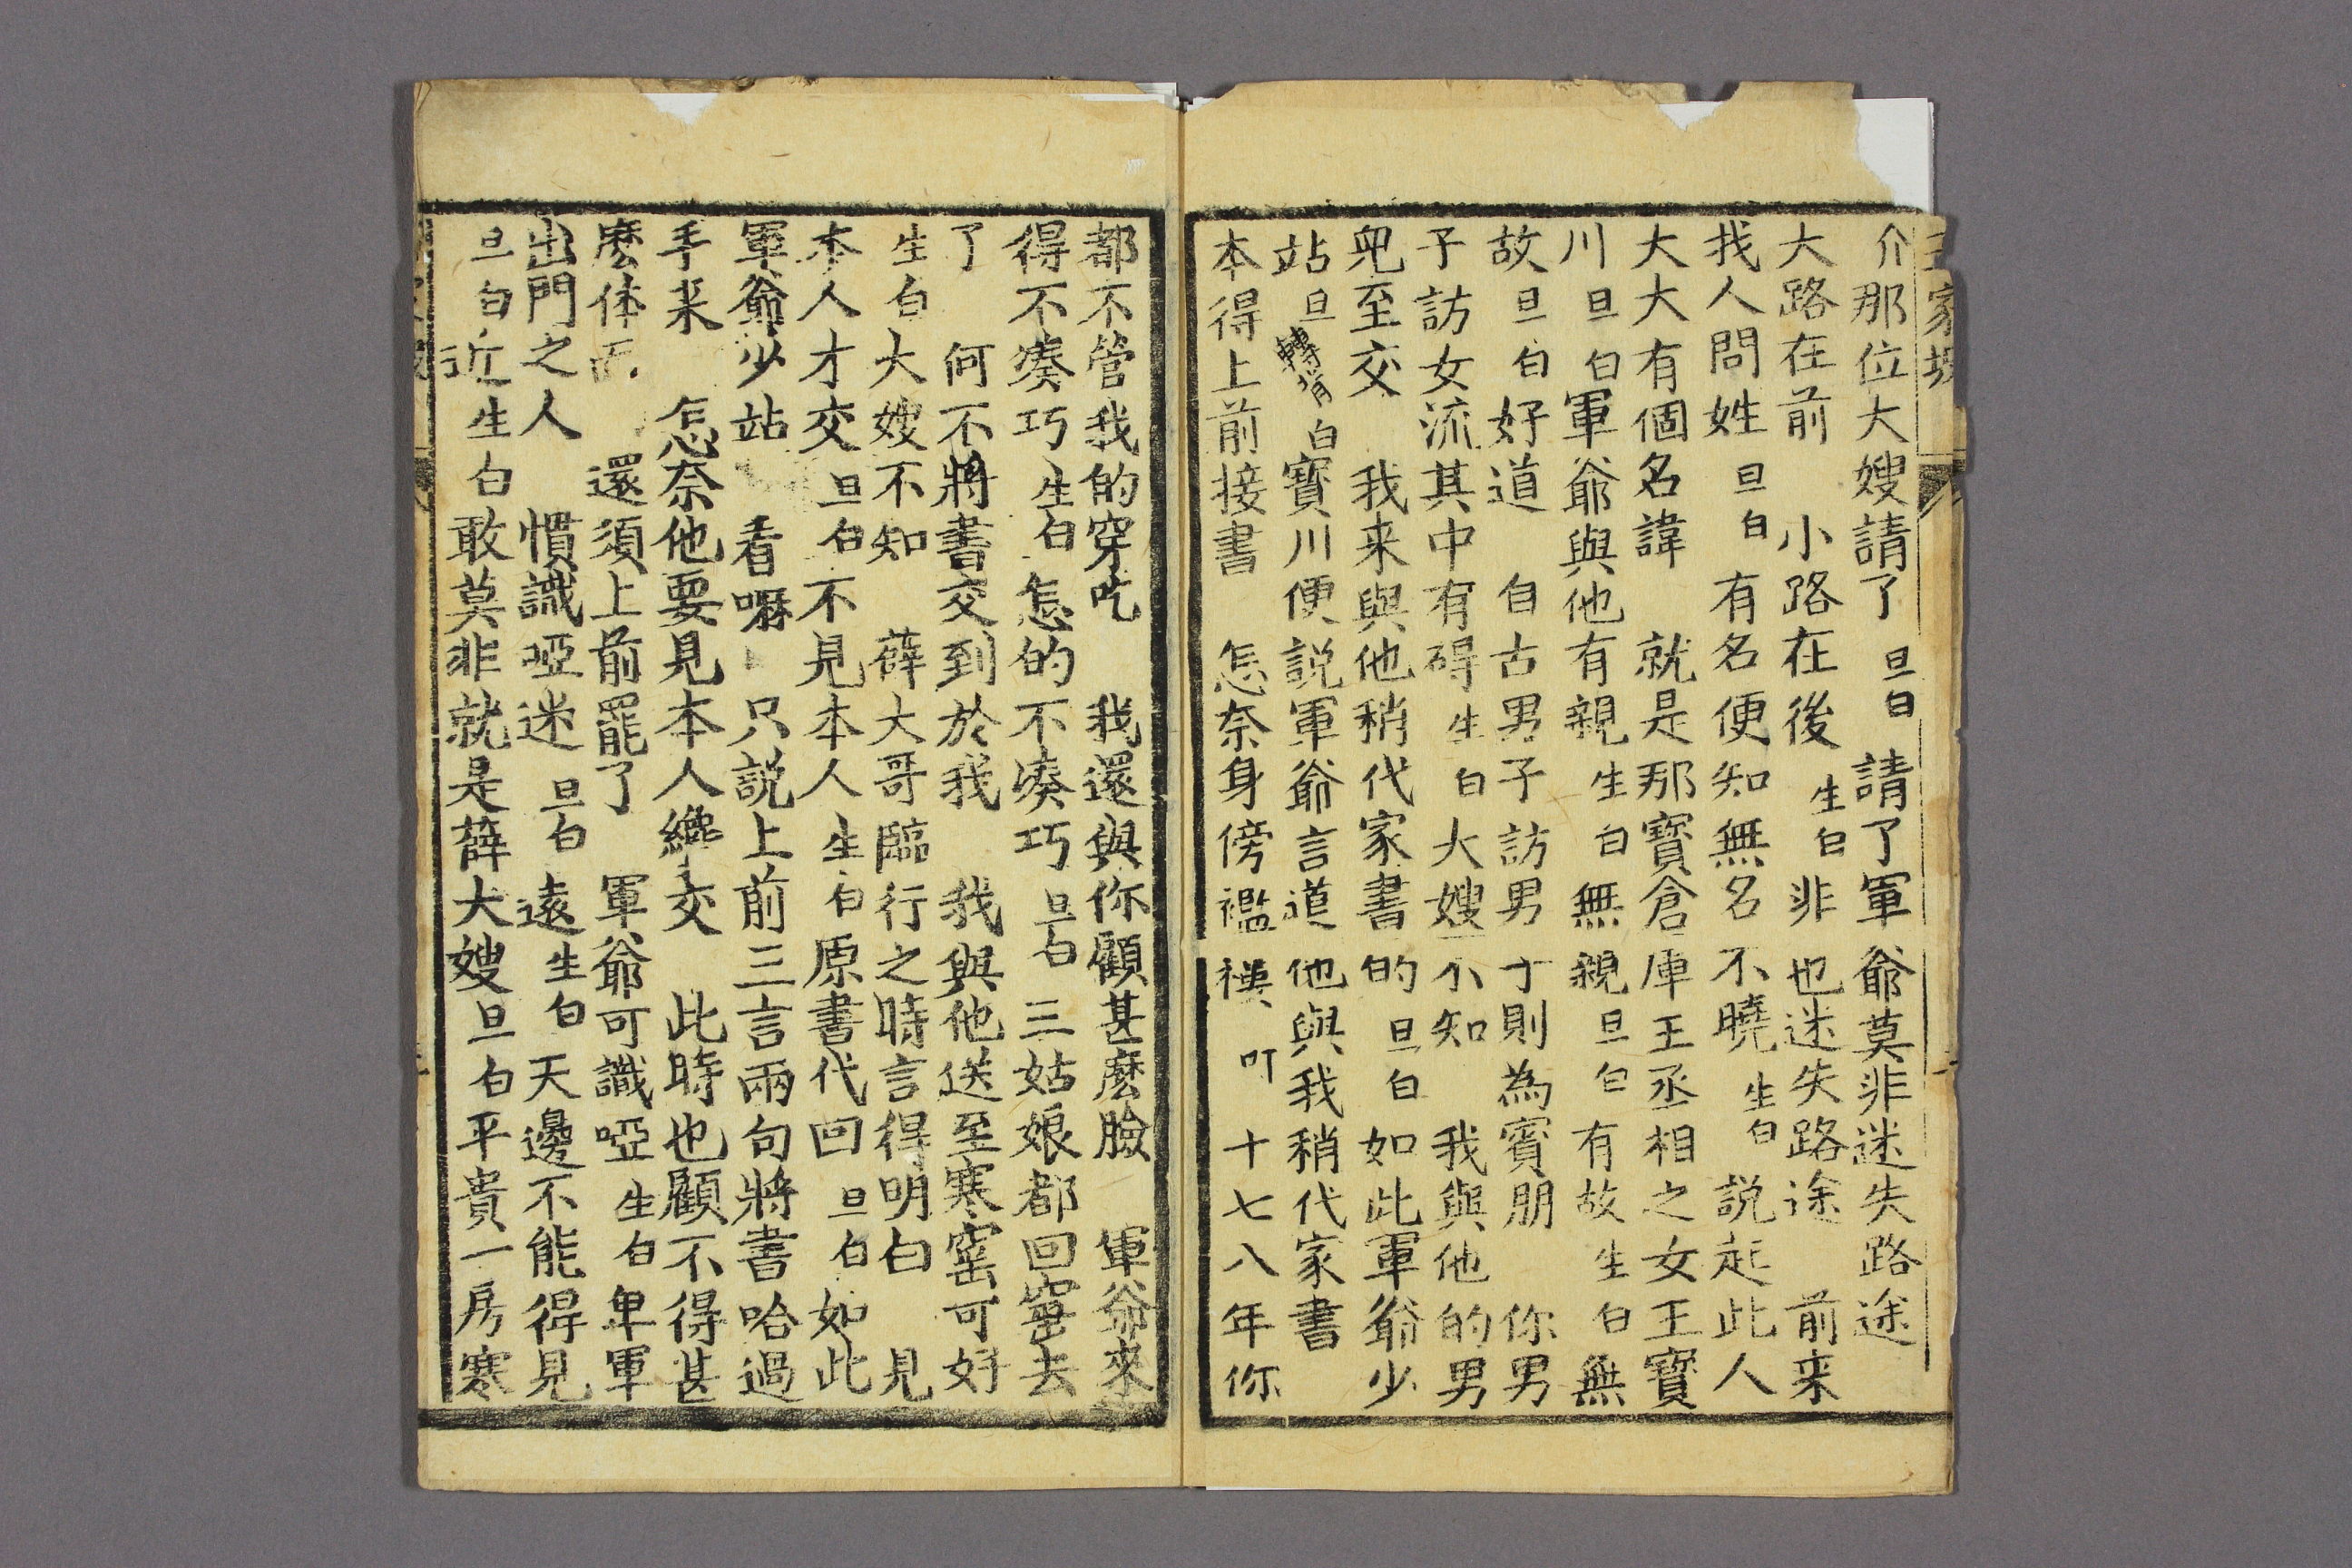 王家坡
介那位大嫂請了 旦白 請了軍爺莫非迷失路途
大路在前 小路在後 生白 非也迷失路途 前来
找人問姓 旦白 有名便知無名不曉 生白 説起此人
大大有個名諱 就是那寳倉庫王丞相之女王寳
川 旦白 軍爺與他有親 生白 無親 旦白 有故 生白 無
故 旦白 好道 自古男子訪男子則為賓朋 你男
子訪女流其中有碍 生白 大嫂不知 我與他的男
兒至交 我来與他稍代家書的 旦白 如此軍爺少
站 旦轉背白 寳川便説軍爺言道他與我稍代家書
本得上前接書 怎奈身傍襤褸 叮 十七八年你
都不管我的穿吃 我還與你顧甚麽臉 軍爺來
得不凑巧 生白 怎的不凑巧 旦白 三姑娘都回窰去
了 何不將書交到於我 我與他送至寒窰可好
生白 大嫂不知 薛大哥臨行之時言得明白 見
本人才交 旦白 不見本人 生白 原書代回 旦白 如此
軍爺少站 看嘛 只説上前三言兩句將書哈過
手来 怎奈他要見本人纔交 此時也顧不得甚
麽体面 還須上前罷了 軍爺可識啞 生白 卑軍
出門之人 慣識啞迷 旦白 遠 生白 天邊不能得見
旦白 近 生白 敢莫非就是薛大嫂 旦白 平貴一房寒